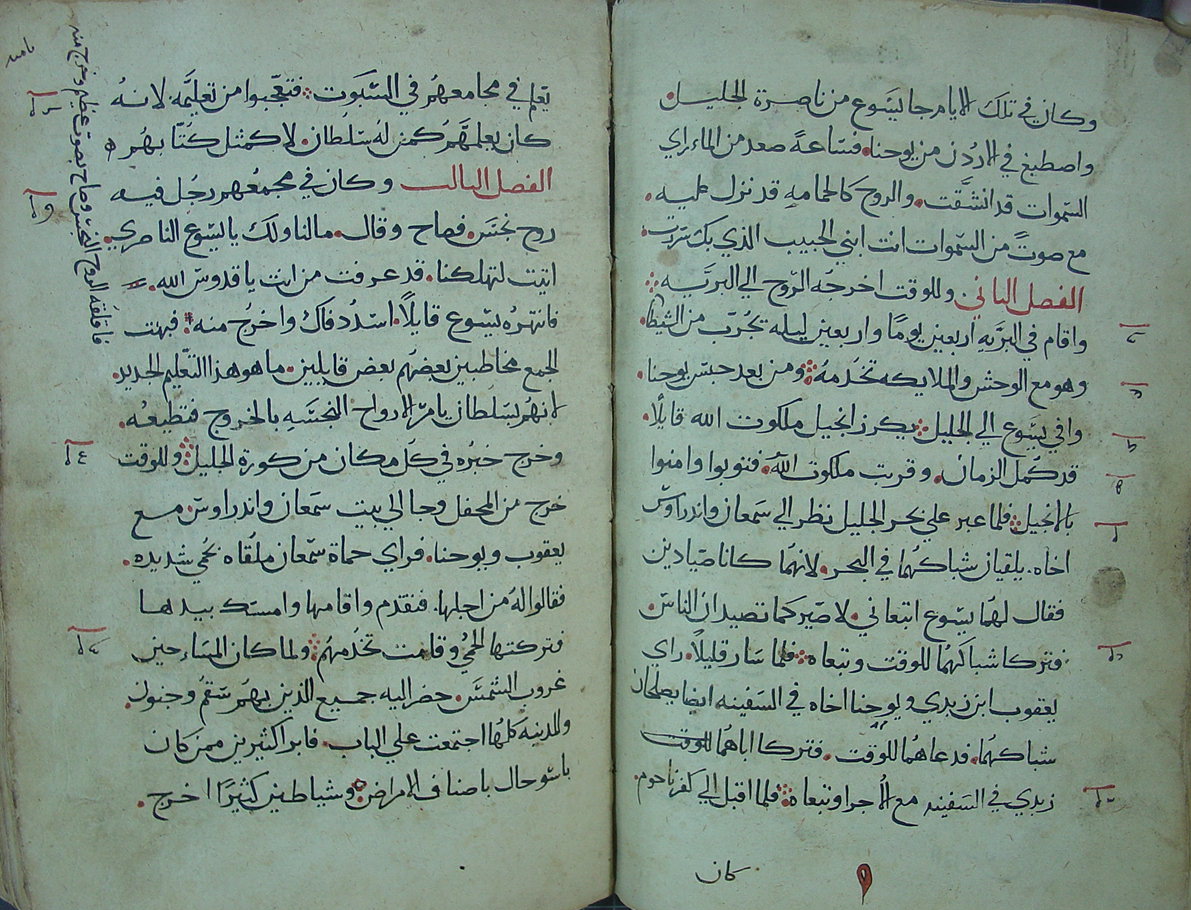 وكان في تلك الايام جا يسوع من ناصرة الجليل
واصطبغ في الاردن من يوحنا. فساعةً صعد من الماء راي
السموات قد انشقت. والروح كالحمامه قد نزل عليه.
مع صوتً من السموات انت ابني الحبيب الذي بك سررت.
الفصل الثاني وللوقت اخرجه الروح الي البريه
واقام في البريه اربعين يومًا واربعين ليله تجرب من الشيطان
وهو مع الوحش والملايكه تخدمه ومن بعد حبس يوحنا.
وافي يسوع الي الجليل يكرز انجيل ملكوت الله قايلًا.
قد كمل الزمان. وقربت ملكوت الله. فتوبوا وامنوا
بالانجيل فلما عبر علي بحر الجليل نظر الي سمعان واندراوس
اخاه. يلقيان شباكهما في البحر. لانهما كانا صيادين
فقال لهما يسوع اتبعاني. لاصيركما تصيدان الناس.
فتركا شباكهما للوقت وتبعاه فلما سار قليلًا. راي
يعقوب ابن زبدي ويوحنا اخاه في السفينه ايضا يصلحان
شباكهما. فدعاهما للوقت. فتركا اباهما للوقت
زبدي في السفينه مع الاجرا وتبعاه فلما اقبل الي كفرناحوم.
كان
يعلم في مجامعهم في السبوت فتعجبوا من تعليمه لانه
كان يعلمهم كمن له سلطان. لا كمثل كتابهم
الفصل الثالث وكان في مجمعهم رجل فيه
روح نجس. فصاح وقال. ما لنا ولك يا يسوع الناصري.
اتيت لتهلكنا. قد عرفت من انت يا قدوس الله.
فانتهره يسوع قايلًا. اسدد فاك واخرج منه فبهت
الجمع مخاطبين بعضهم بعض قايلين. ما هو هذا التعليم الجديد.
لانهم بسلطان يامر الارواح النجسه بالخروج فتطيعه.
وخرج خبره في كل مكان من كورة الجليل وللوقت
خرج من المحفل وجا الي بيت سمعان واندراوس. مع
يعقوب ويوحنا. فراي حماة سمعان ملقاه بحمي شديده.
فقالوا له من اجلها. فتقدم واقامها وامسك بيدها
فتركتها الحمي وقامت تخدمهم ولما كان المساء حين
غروب الشمس. حضر اليه جميع الذين بهم سقم وجنون.
والمدينه كلها اجتمعت علي الباب. فابرا كثيرين ممن كان
باسو حال باصناف الامراض وشياطين كثيرًا اخرج.
فاقلقه الروح النجس وصاح بصوت عظيم وخرج منه